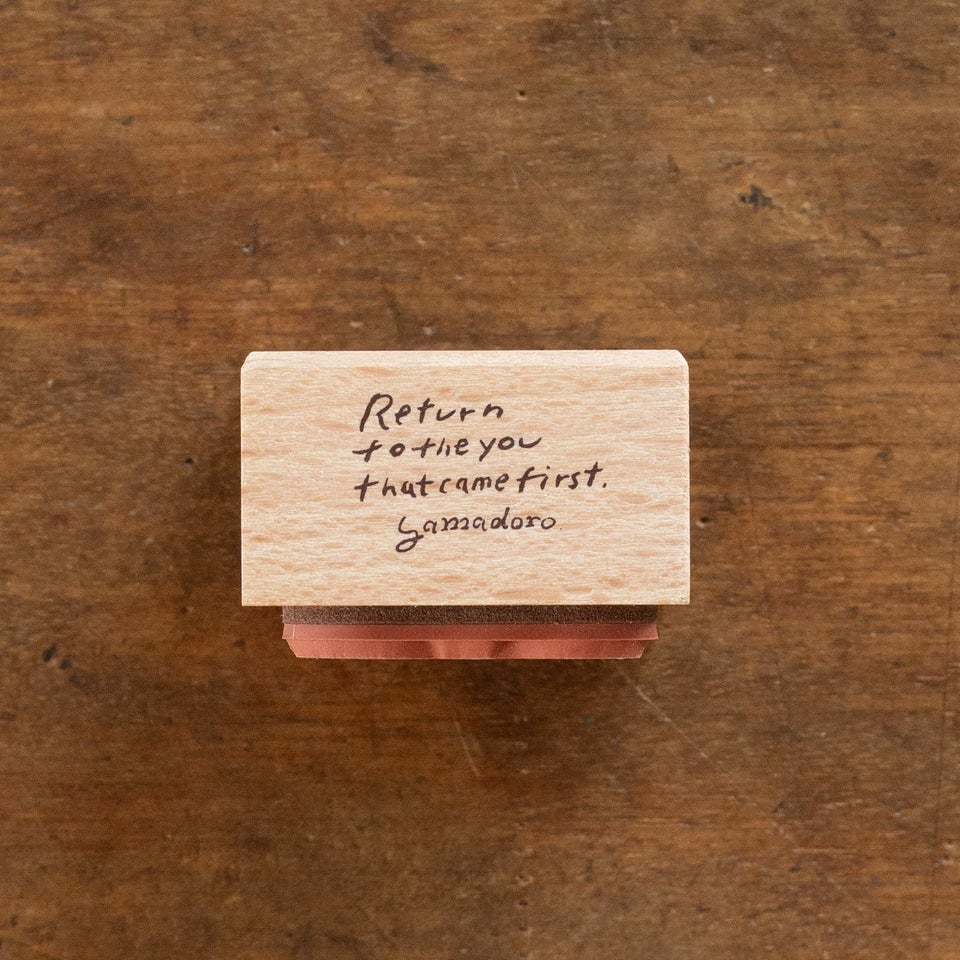 Return
to the you
that came first.
yamadoro